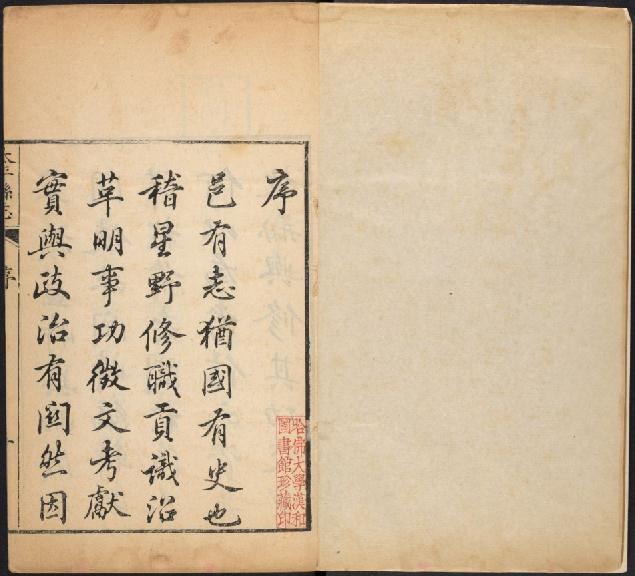 序
邑有志猶國有史也
稽星野修職貢識沿
革明事功徵文考獻
實與政治有關然因
序
哈佛大學漢和
圖書館珍藏印